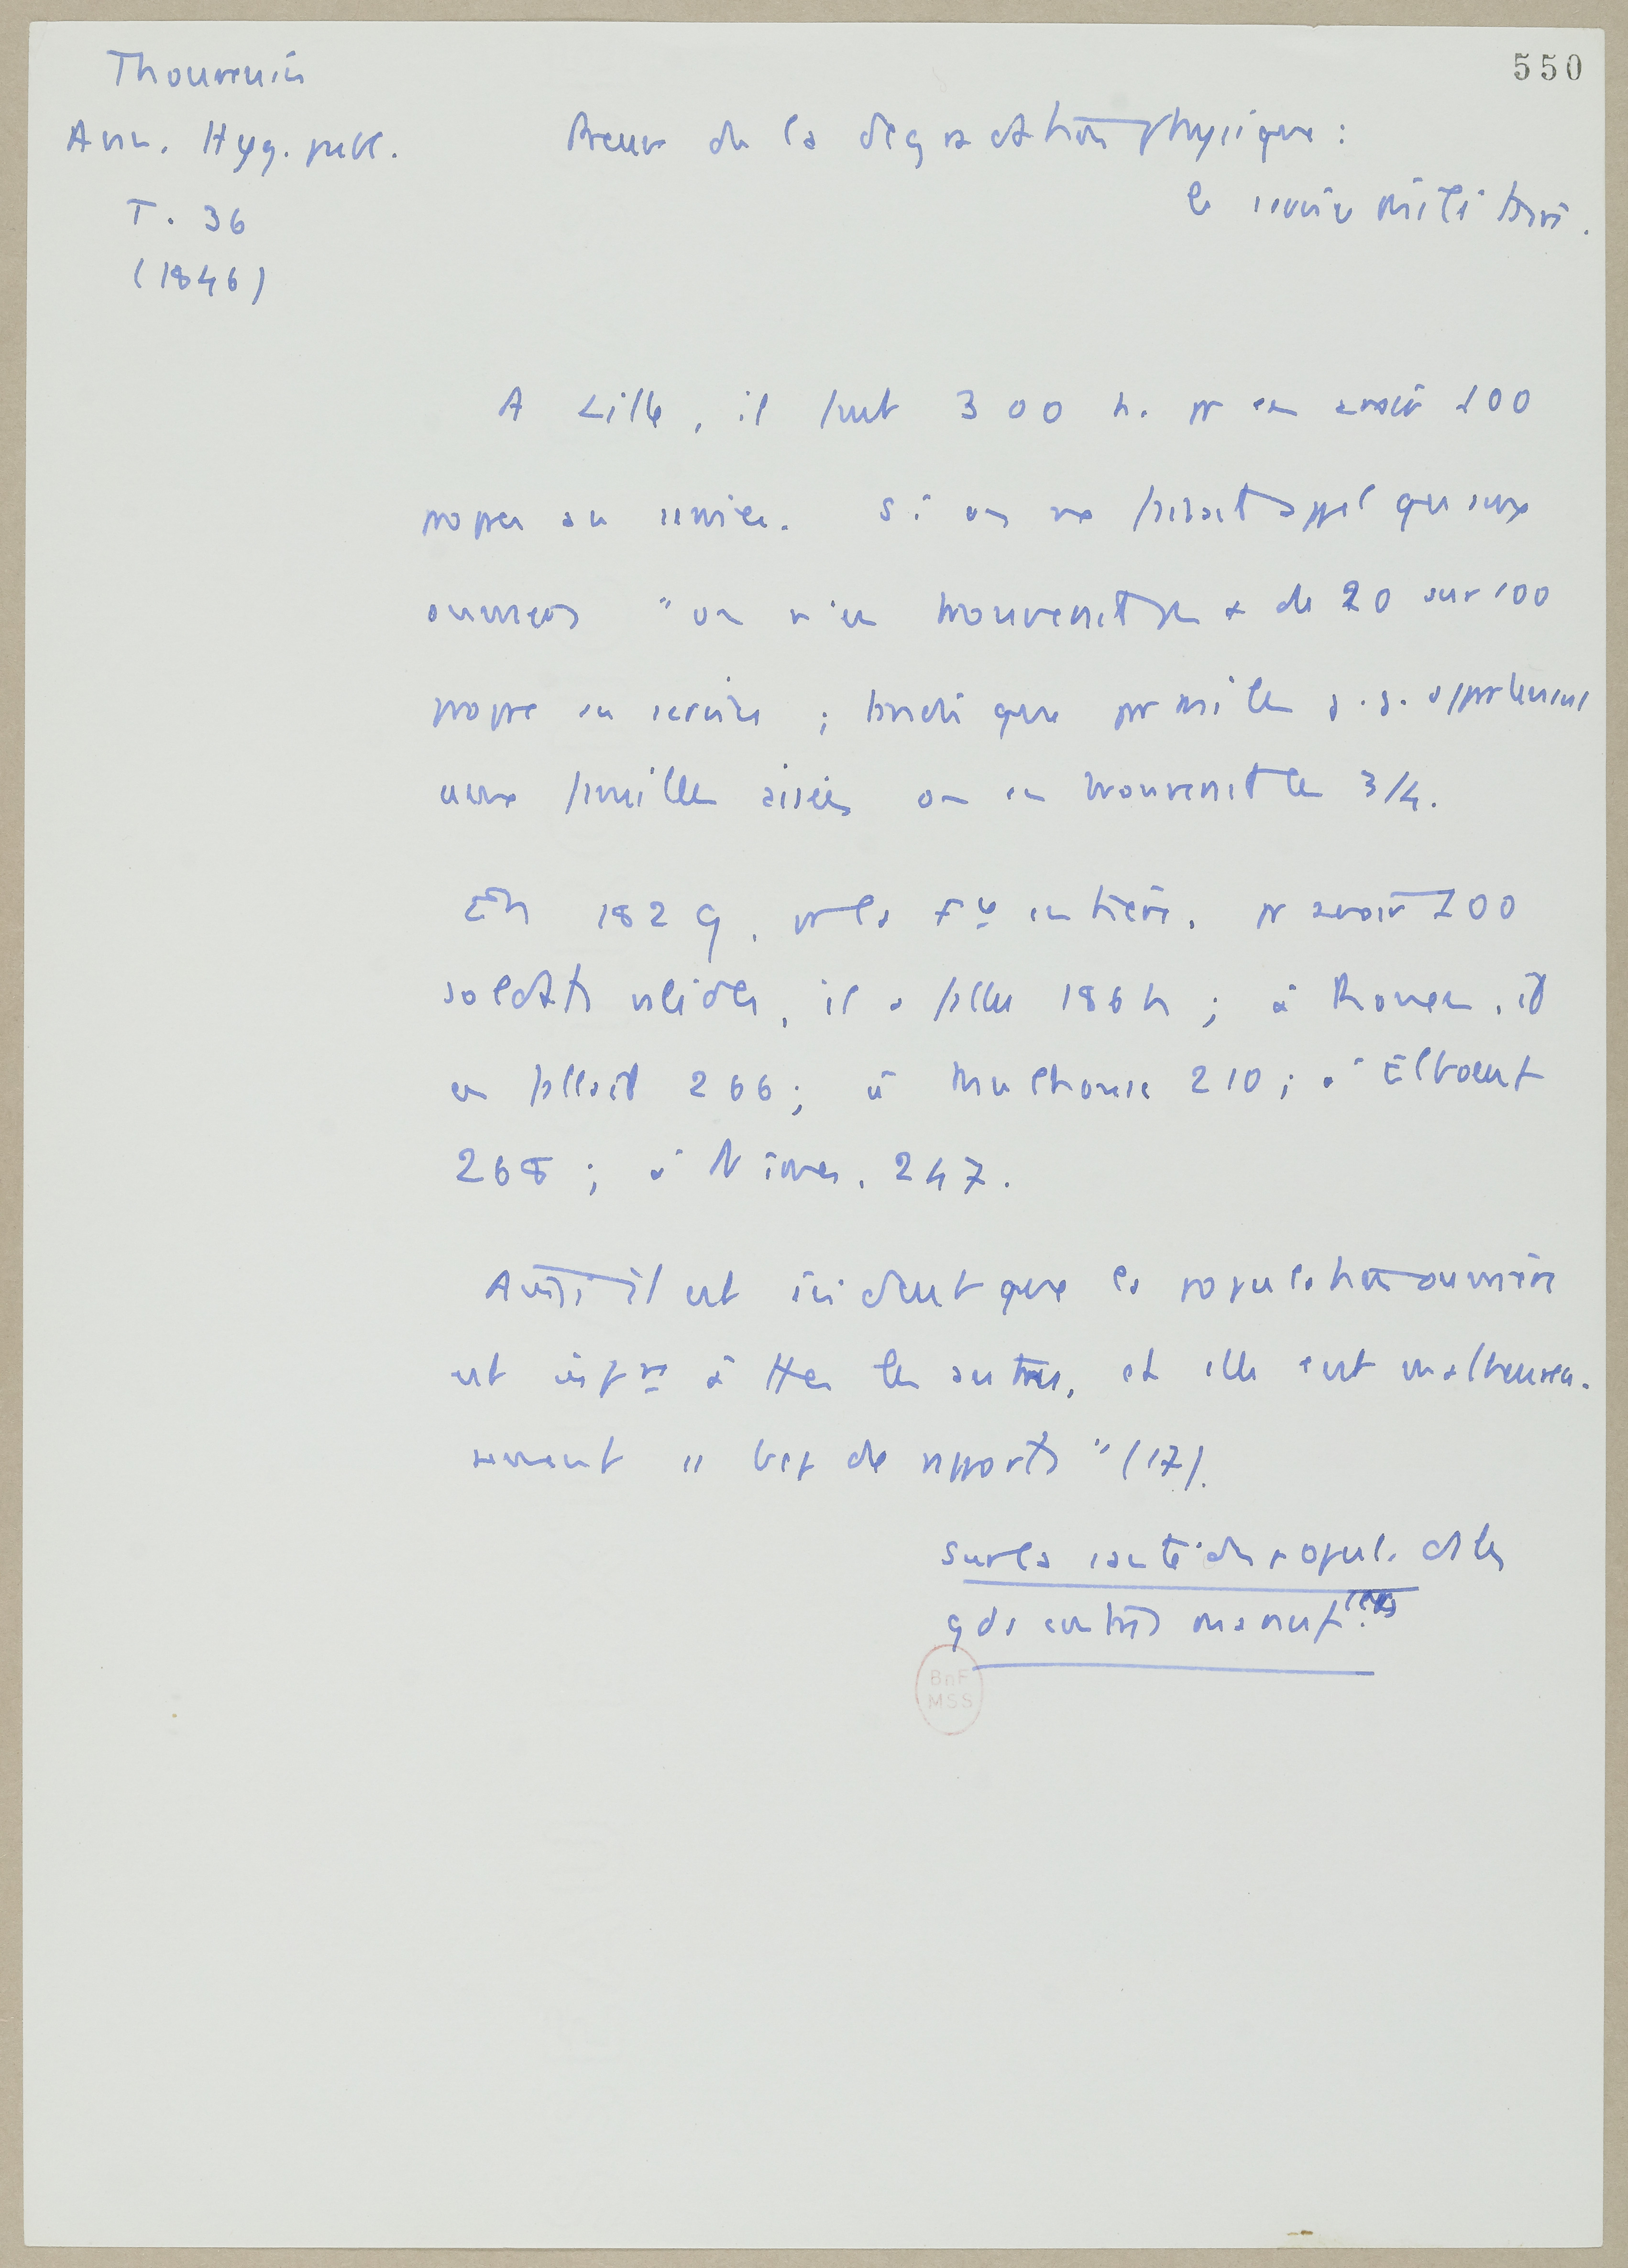 550
Thouvenin
Ann. Hyg. publ.
T. 36
(1846)
Preuve de la dégradation physique :
le service militaire.
A Lille, il faut 300 h. pr en avoir 100
propres au service. Si on ne faisait appel qu'aux
ouvriers "on n'en trouverait pas + de 20 sur 100
propres au service ; tandis que parmi les j. g. appartenant
aux familles aisées on en trouverait les 3/4.
En 1829, pr la Fce entière, pr avoir 100
soldats valides, il a fallu 186 h ; à Rouen, il
en fallait 266 ; à Mulhouse 210 ; à Elboeuf
268 ; à Nîmes, 247.
Ainsi il est évident que la population ouvrière
est infre à ttes les autres, et elle est malheureu-
sement "
de rapports" (17).
Sur la santé des popul. ds les
gdes centres manuf.
BnF
MSS